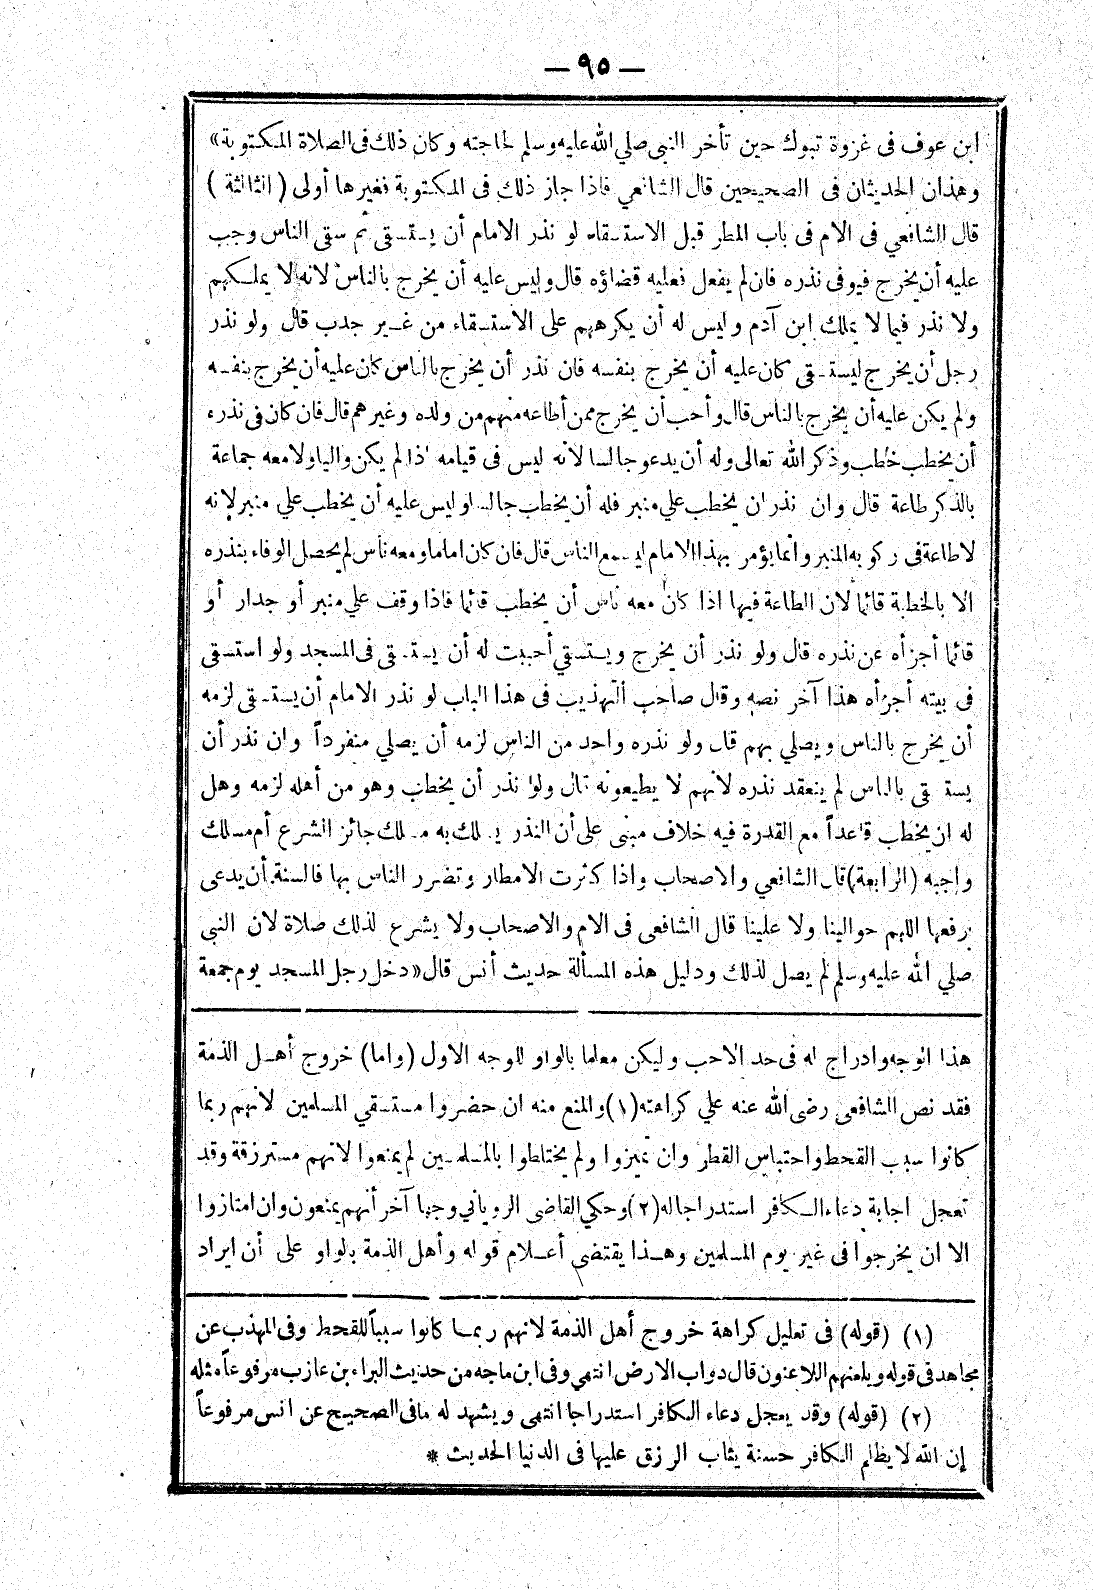 — ٩٥ —
ابن عوف فى غزوة تبوك حين تأخر النبى صلي الله عليه وسلم لحاجته وكان ذلك فى الصلاة المكتوبة»
وهذان الحديثان فى الصحيحين قال الشافعي فاذا جاز ذلك فى المكتوبة فغيرها أولى (الثالثة)
قال الشافعي فى الام فى باب المطر قبل الاستسقاء لو نذر الامام أن يستسقى ثم سقى الناس وجب
عليه أن يخرج فيوفى نذره فان لم يفعل فعليه قضاؤه قال وليس عليه أن يخرج بالناس لانه لا يملكهم
ولا نذر فيما لا يملك ابن آدم وليس له أن يكرههم على الاستسقاء من غير جدب قال ولو نذر
رجل أن يخرج ليستسقى كان عليه أن يخرج بنفسه فان نذر أن يخرج بالناس كان عليه أن يخرج بنفسه
ولم يكن عليه أن يخرج بالناس قال وأحب أن يخرج ممن أطاعه منهم من ولده وغيرهم قال فان كان فى نذره
أن يخطب خطب وذكر الله تعالى وله أن يدعو جالسا لانه ليس فى قيامه اذا لم يكن واليا ولا معه جماعة
بالذكر طاعة قال وان نذر ان يخطب علي منبر فله أن يخطب جالسا وليس عليه أن يخطب علي منبر لانه
لا طاعة فى ركوبه المنبر وانما يؤمر بهذا الامام ليسمع الناس قال فان كان اماما ومعه ناس لم يحصل الوفاء بنذره
الا بالخطبة قائما لان الطاعة فيها اذا كان معه ناس أن يخطب قائما فاذا وقف علي منبر أو جدار أو
قائما أجزأه عن نذره قال ولو نذر أن يخرج ويستسقي أحببت له أن يستسقى فى المسجد ولو استسقى
فى بيته أجزأه هذا آخر نصه وقال صاحب التهذيب فى هذا الباب لو نذر الامام أن يستسقى لزمه
أن يخرج بالناس ويصلي بهم قال ولو نذره واحد من الناس لزمه أن يصلي منفرداً وان نذر أن
يستسقى بالناس لم ينعقد نذره لانهم لا يطيعونه قال ولو نذر أن يخطب وهو من أهله لزمه وهل
له ان يخطب قاعداً مع القدرة فيه خلاف مبنى على أن النذر يسلك به مسلك جائز الشرع أم مسلك
واجبه (الرابعة) قال الشافعي والاصحاب واذا كثرت الامطار وتضرر الناس بها فالسنة أن يدعى
برفعها اللهم حوالينا ولا علينا قال الشافعى فى الام والاصحاب ولا يشرع لذلك صلاة لان النبى
صلي الله عليه وسلم لم يصل لذلك ودليل هذه المسألة حديث أنس قال «دخل رجل المسجد يوم جمعة
هذا الوجه وادراج له فى حد الاحب وليكن معلما بالواو للوجه الاول (واما) خروج أهل الذمة
فقد نص الشافعى رضى الله عنه علي كراهته (١) والمنع منه ان حضروا مستسقي المسلمين لانهم ربما
كانوا سبب القحط واحتباس القطر وان تميزوا ولم يختلطوا بالمسلمين لم يمنعوا لانهم مسترزقة وقد
تعجل اجابة دعاء الكافر استدراجا له (٢) وحكي القاضى الروياني وجها آخر أنهم يمنعون وان امتازوا
الا ان يخرجوا فى غير يوم المسلمين وهذا يقتضى أعلام قوله وأهل الذمة بالواو على أن ايراد
(١) (قوله) فى تعليل كراهة خروج أهل الذمة لانهم ربما كانوا سبباً للقحط وفى المهذب عن
مجاهد فى قوله ويلعنهم اللاعنون قال دواب الارض انتهي وفى ابن ماجه من حديث البراء بن عازب مرفوعاً مثله
(٢) (قوله) وقد يعجل دعاء الكافر استدراجا انتهى ويشهد له مافى الصحيح عن انس مرفوعاً
إن الله لا يظلم الكافر حسنة يثاب الرزق عليها فى الدنيا الحديث *